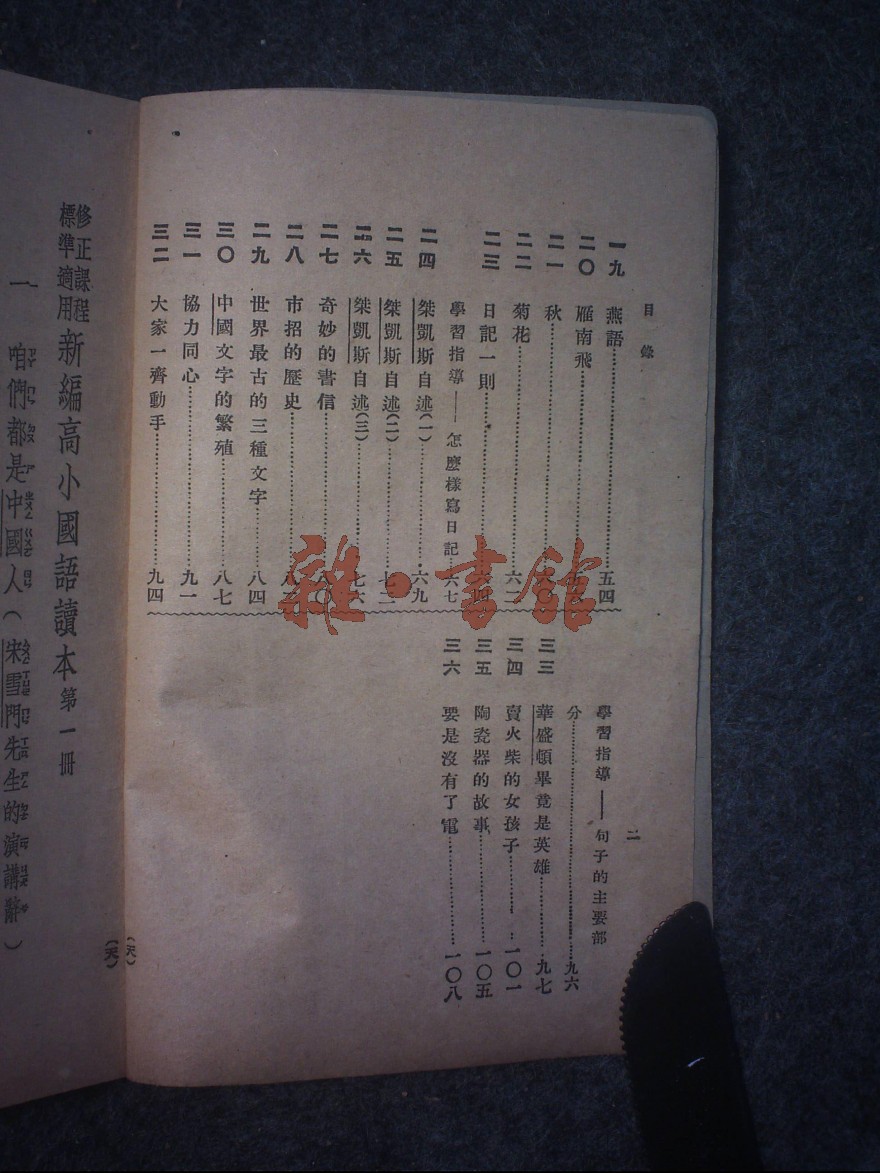 目錄
一九 燕語……五四
二〇 雁南飛……
二一 秋……
二二 菊花……六二
二三 日記一則……六四
學習指導——怎麼樣寫日記……六七
二四 桀凱斯自述(一)……六九
二五 桀凱斯自述(二)……
二六 桀凱斯自述(三)……七六
二七 奇妙的書信……八〇
二八 市招的歷史……
二九 世界最古的三種文字……八四
三〇 中國文字的繁殖……八七
三一 協力同心……九一
三二 大家一齊動手……九四
二
學習指導——句子的主要部
分……九六
三三 華盛頓畢竟是英雄……九七
三四 賣火柴的女孩子……一〇一
三五 陶瓷器的故事……一〇五
三六 要是沒有了電……一〇八
(天)
(天)
修正課程
標準適用
新編高小國語讀本 第一冊
一 咱們都是中國人(宋雪門先生的演講辭)
雜·書館